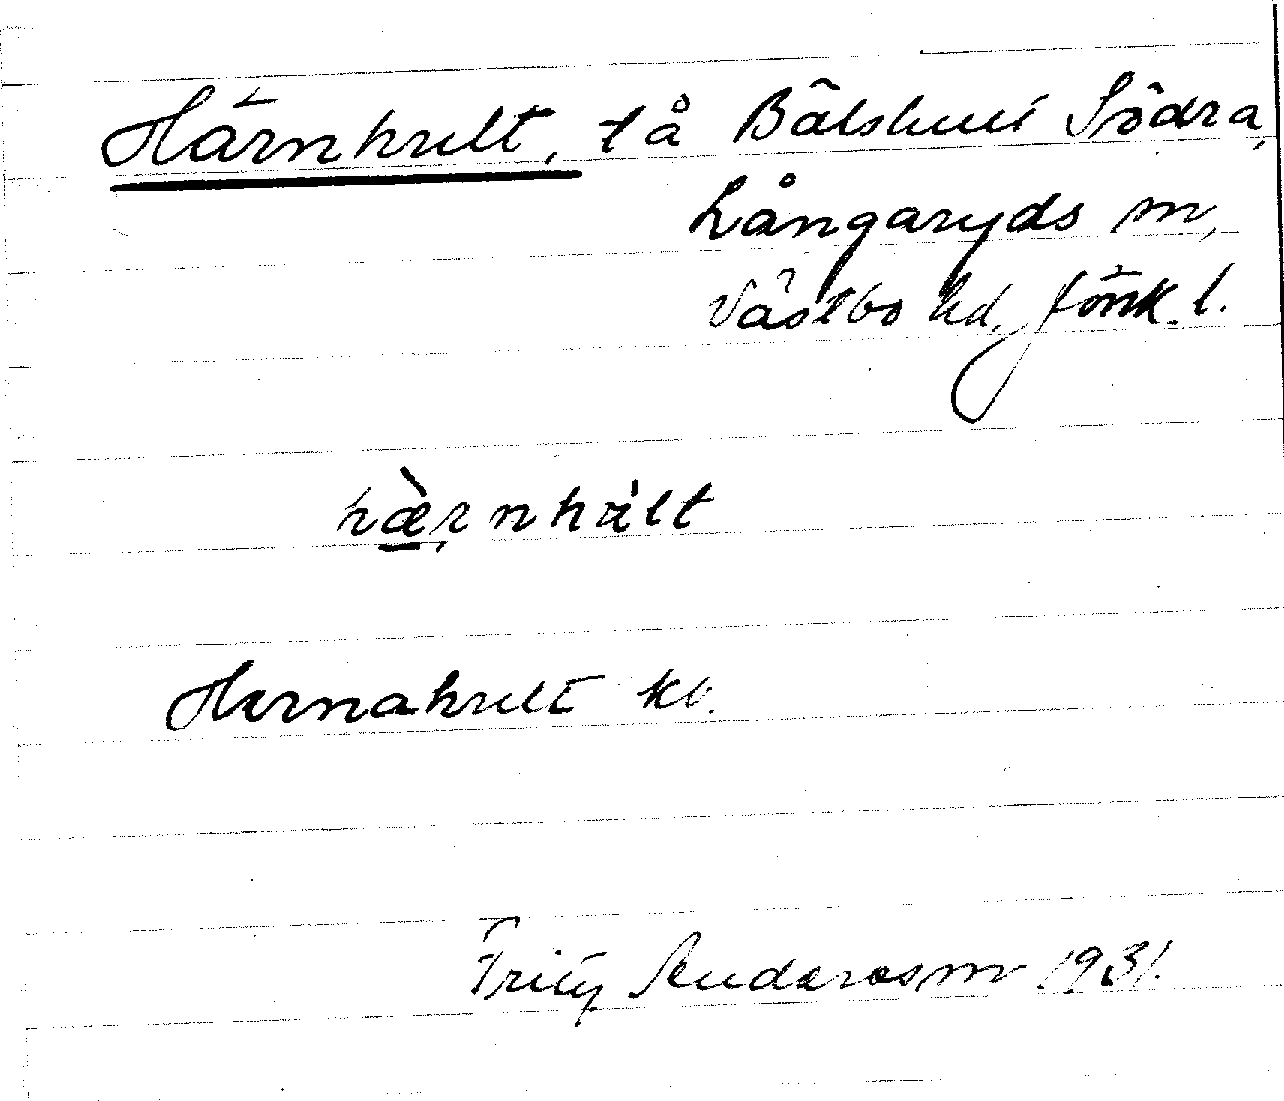 Härnhult, tå Bälshult Södra,
Långaryds sn,
Västbo hd, Jönk. l.
hæ̀rnhùlt
Hernahult kb.
Fritz Andersson 1931.